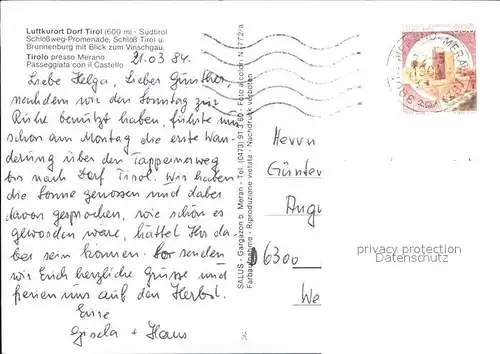 Luftkurort Dorf Tirol (600 m) - Südtirol
Schloßweg-Promenade, Schloß Tirol u.
Brunnenburg mit Blick zum Vinschgau.
Tirolo presso Merano
Passeggiata con il Castello
21.03 84.
Liebe Helga, Lieber Günther,
nachdem wir den Sonntag zur
Ruhe benützt haben, führte uns
schon am Montag die erste Wan-
derung über den Tappeinerweg
bis nach Dorf Tirol. Wir haben
die Sonne genossen und dabei
davon gesprochen, wie schön es
gewesen wäre, hättet Ihr da-
bei sein können. So senden
wir Euch herzliche Grüsse und
freuen uns auf den Herbst.
Eure
Gisela + Haus
SALUS - Gargazon b. Meran - Tel. (0473) 91 3 60 - Foto a colori: N. 772/a
Farbaufnahme - Riproduzione vietata - Nachdruck verboten
Herrn
Günter
Augu
6300
We
privacy protection
Datenschutz